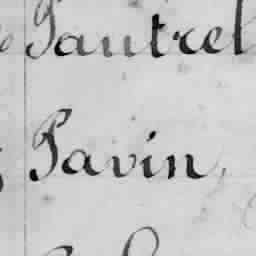 Pautrel
Pavin,